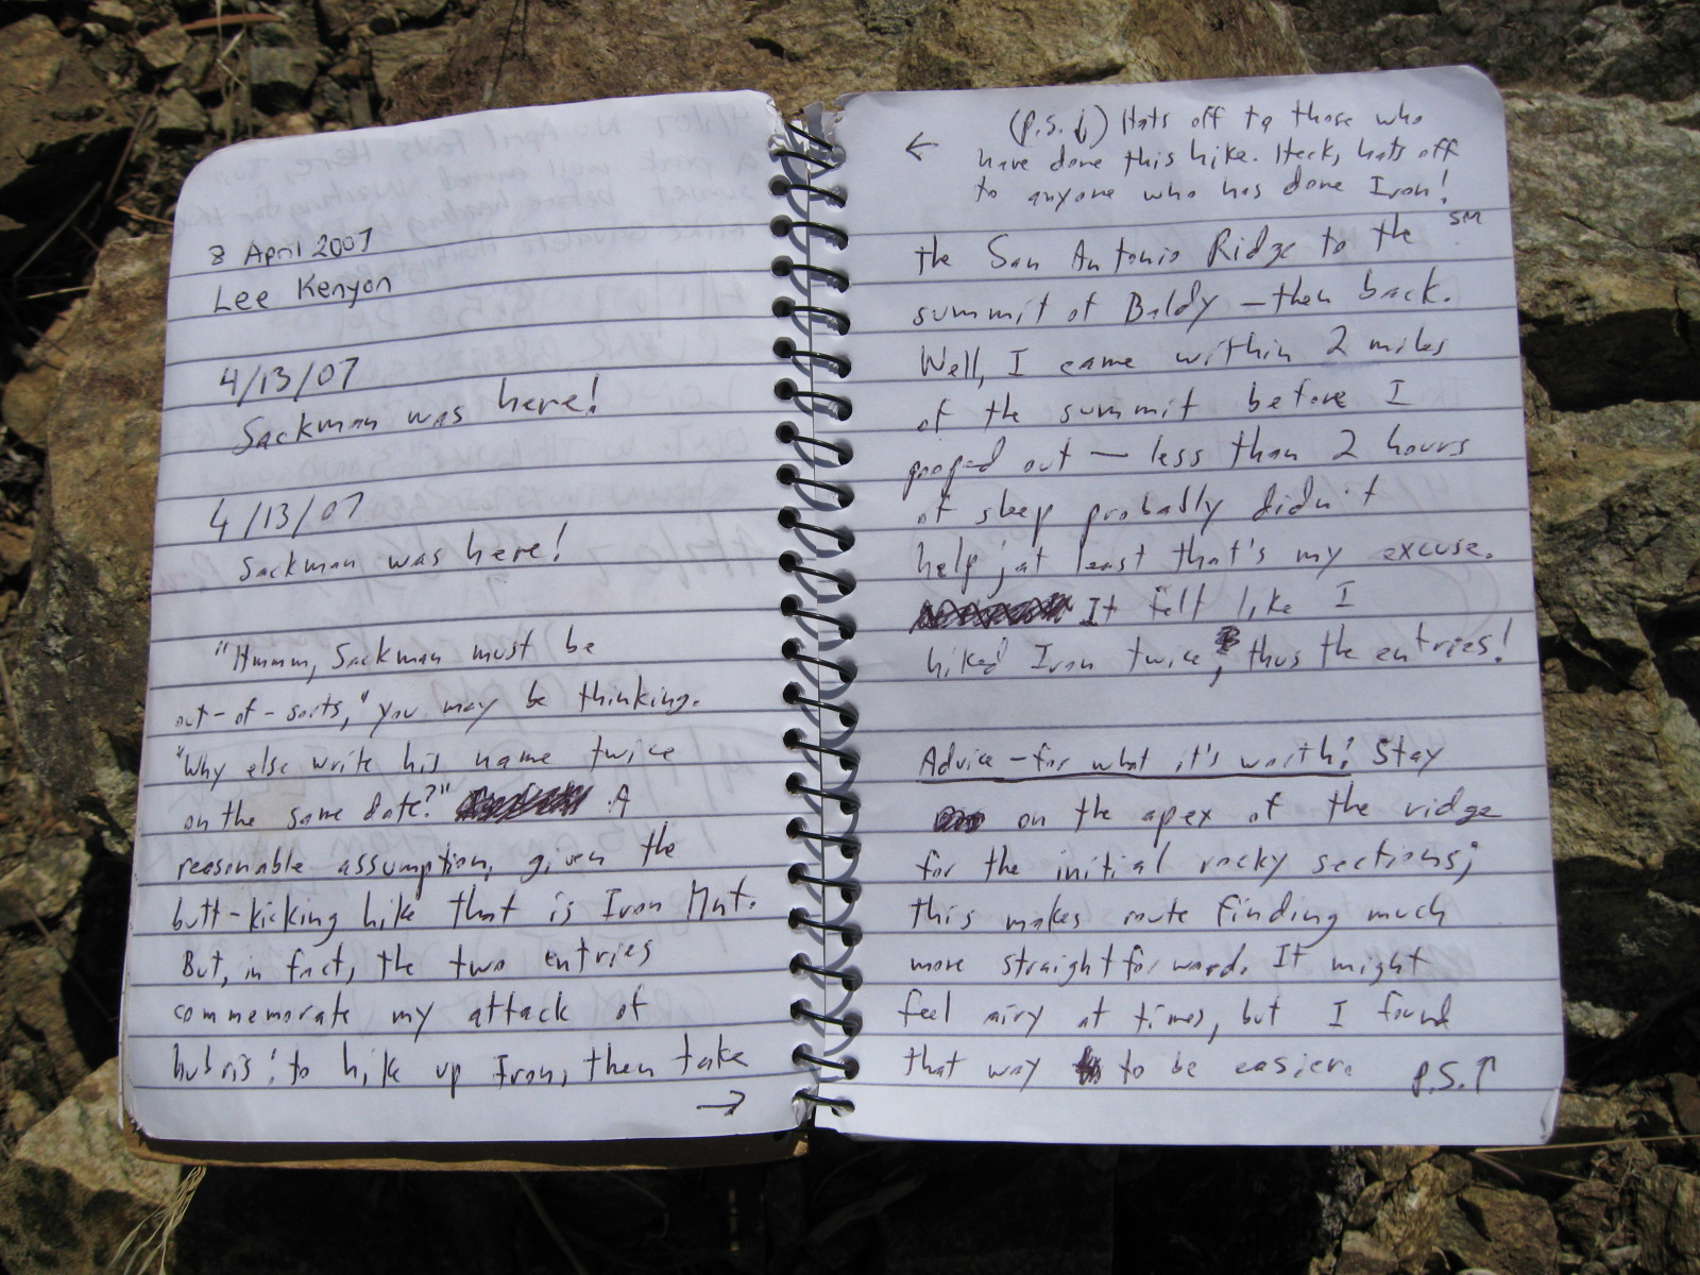 8 April 2007
Lee Kenyon
4/13/07
Sackman was here!
4/13/07
Sackman was here!
"Hmmm, Sackman must be
out-of-sorts," you may be thinking.
"Why else write his name twice
on the same date?" A
reasonable assumption, given the
butt-kicking hike that is Iron Mnt.
But, in fact, the two entries
commemorate my attack of
hubris: to hike up Iron, then take
→
← (p.s. ↓) Hats off to those who
have done this hike. Heck, hats off
to anyone who has done Iron!
SM
the San Antonio Ridge to the
summit of Baldy – then back.
Well, I came within 2 miles
of the summit before I
pooped out – less than 2 hours
of sleep probably didn't
help; at least that's my excuse.
It felt like I
hiked Iron twice, thus the entries!
Advice – for what it's worth: Stay
on the apex of the ridge
for the initial rocky sections;
this makes route finding much
more straightforward. It might
feel airy at times, but I found
that way to be easier. P.S.↑